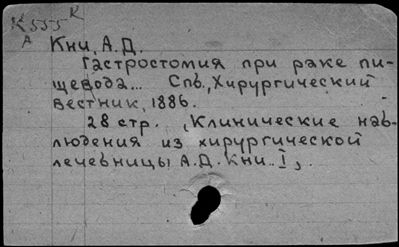 К555 К
А
Кни, А.Д.
Гастростомия при раке пи-
щевода... Спб., Хирургический
вестник, 1886.
28 стр. (Клинические наб-
людения из хирургической
лечебницы А.Д. Кни. I),